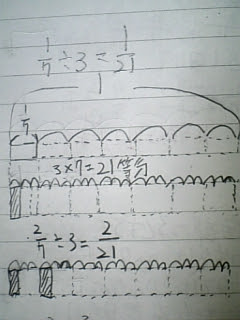 1/7 ÷ 3 = 1/21
1
1/7
3×7=21等分
2/7 ÷ 3 = 2/21